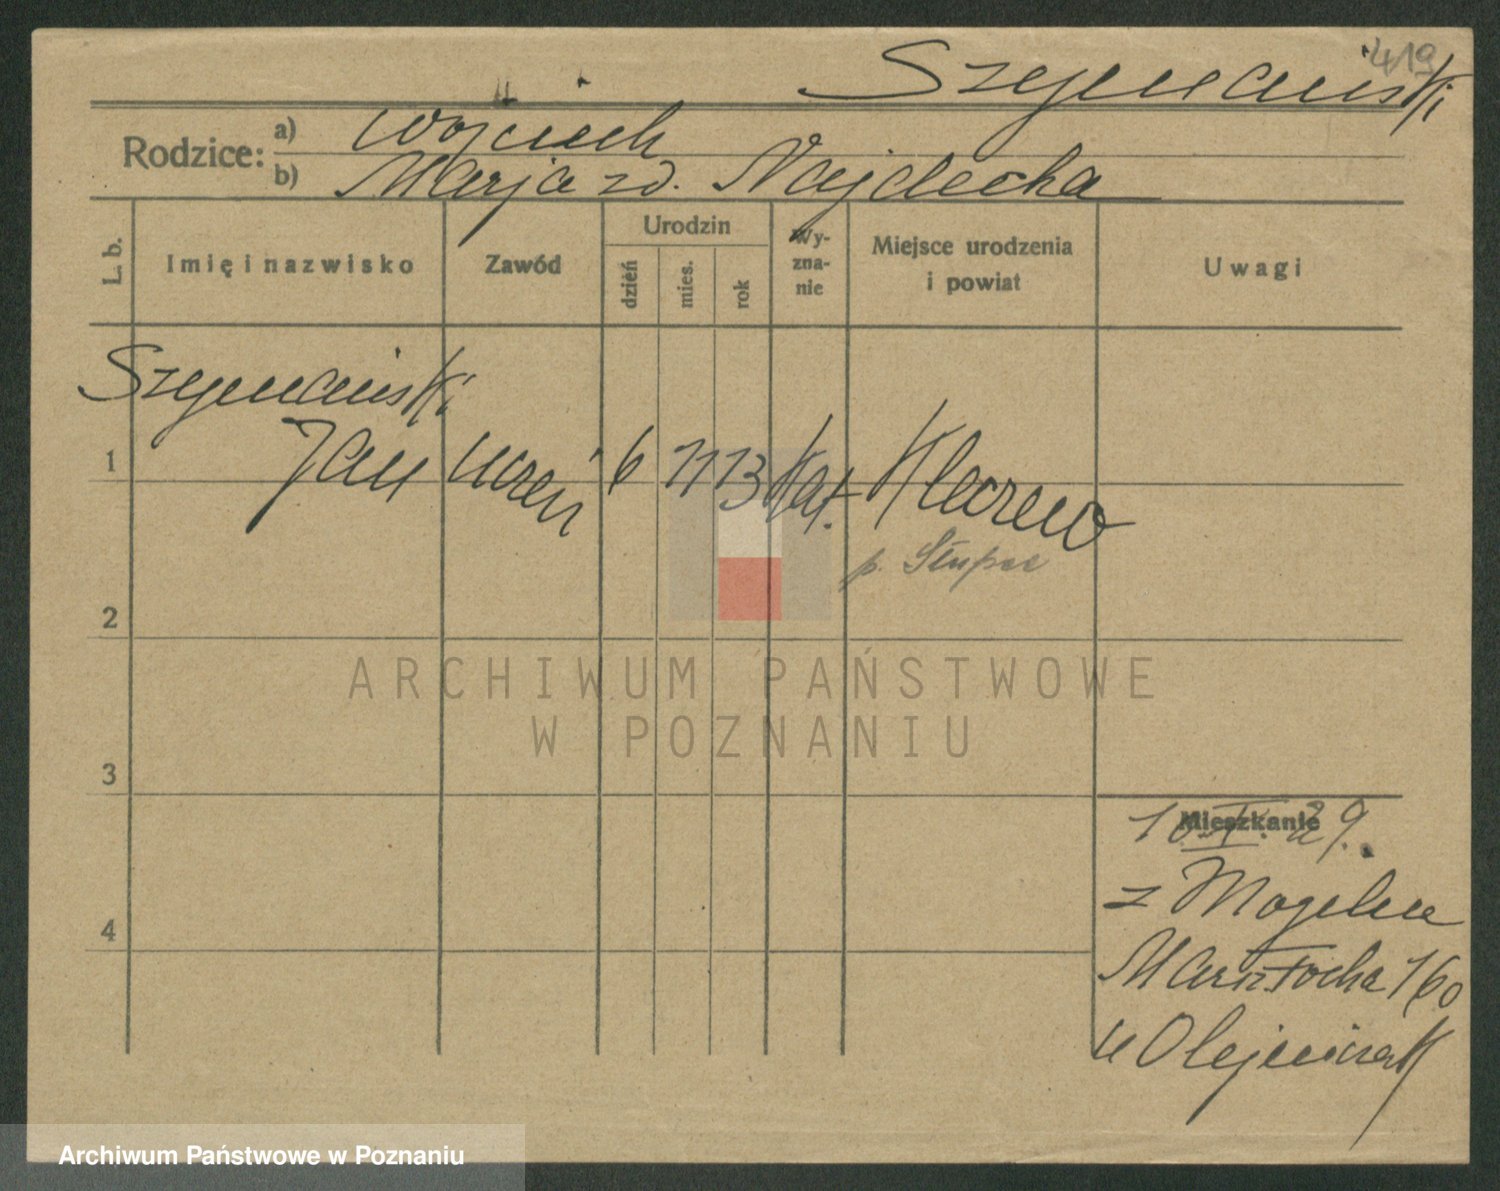 419
Szymański
Rodzice:
a) Wojciech
b) Marja zd. Najdecka
L. b.
Imię i nazwisko
Zawód
Urodzin
dzień
mies.
rok
Wy-
zna-
nie
Miejsce urodzenia
i powiat
Uwagi
Szymański
1 Jan uczeń 6 11 13 kat. Kleczewo
p. Słupce
2
3
4
Mieszkanie
10. I. 29.
z Mogilna
160
u Olejniczak
ARCHIWUM PAŃSTWOWE
W POZNANIU
Archiwum Państwowe w Poznaniu